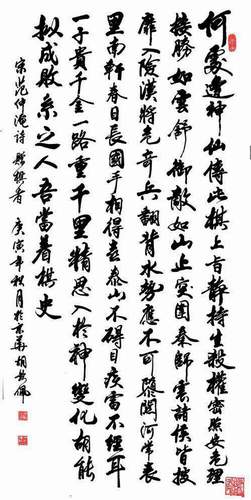 何處逢神仙傳此棋上旨靜持生殺權密照安危理
接勝如雲舒御敵如山止突圍秦師震諸侯皆披
靡入險漢將危奇兵翻背水勢應不可隳關河常表
里南軒春日長國手相得喜泰山不碍目疾雷不經耳
一子貴千金一路重千里精思入於神變化胡能
拟成敗系之人吾當着棋史
宋范仲淹詩贈棋者 庚寅年秋月於京華胡